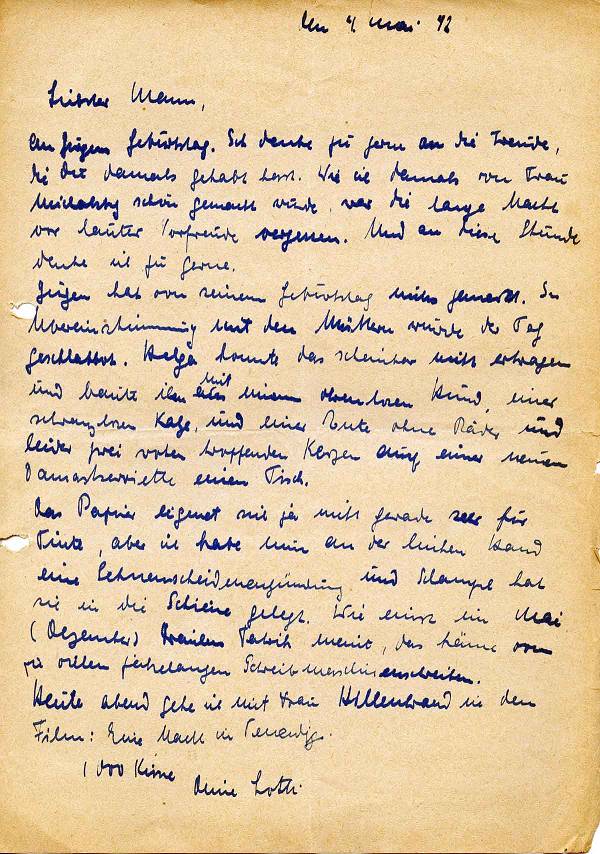 den 4. Mai 42
Liebster Mann,
an Jürgens Geburtstag. Ich denke zu gern an die Freude,
die Du damals gehabt hast. Wie ich damals von Frau
schön gemacht wurde, war die lange Nacht
vor lauter Vorfreude vergessen. Und an diese Stunde
denke ich zu gerne.
Jürgen hat von seinem Geburtstag nichts gemerkt. In
Übereinstimmung mit den Müttern wurde der Tag
Helga konnte das scheinbar nicht ertragen
und baute ihm mit einem ohrenlosen Hund, einer
schwanzlosen Katze, und einer Ente ohne Räder und
leider zwei roten tropfenden Kerzen auf einer neuen
Damastserviette einen Tisch.
Das Papier eignet sich ja nicht gerade sehr für
Tinte, aber ich habe nun an der linken Hand
eine Sehnenscheidenentzündung und hat
sie in die Schiene gelegt. Wie einst im Mai
(Dezember) meint, das käme vom
zu vielen jahrelangen Schreibmaschinenschreiben.
Heute abend gehe ich mit Frau Hillenbrand in den
Film: Eine Nacht in Venedig.
1000 Küsse
Deine Lotti